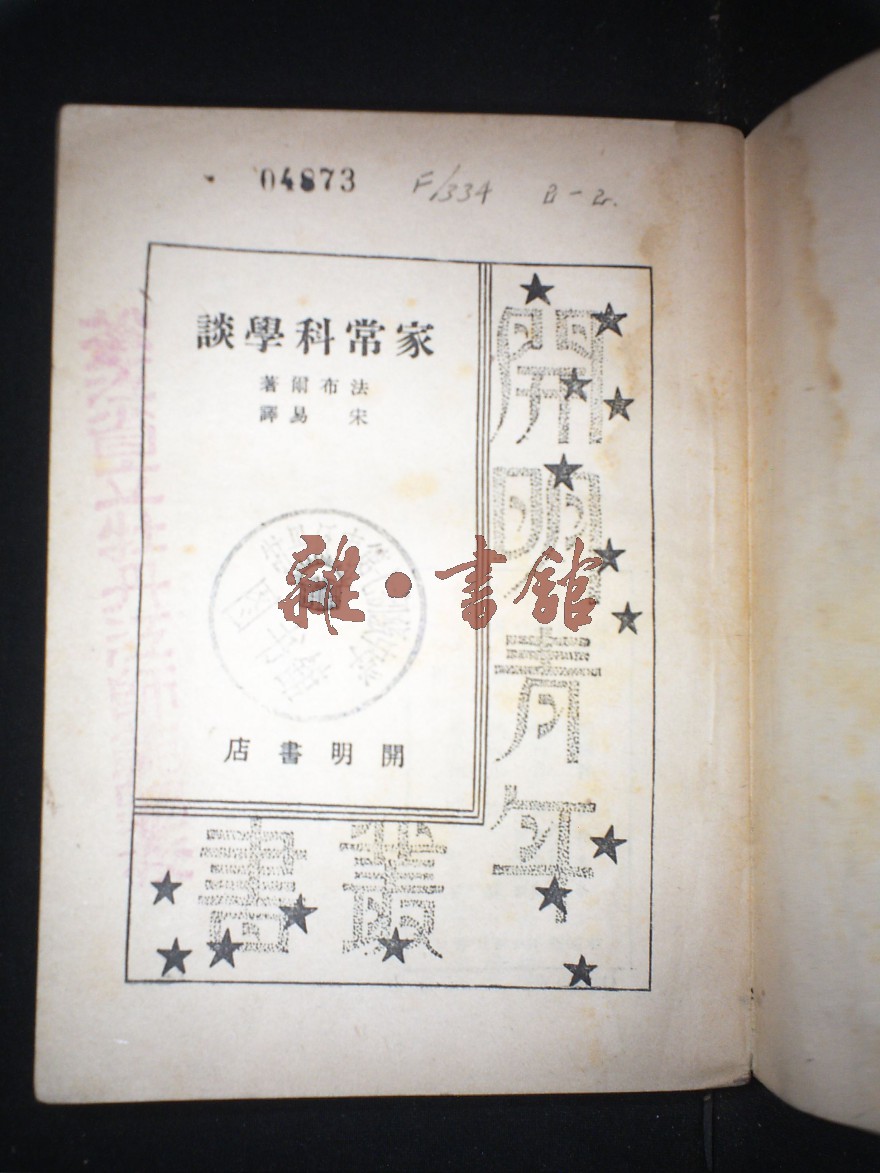 04873 F/334 B-2.
家常科學談
法布爾著
宋易譯
雜·書館
開明書店
開明青年
叢書